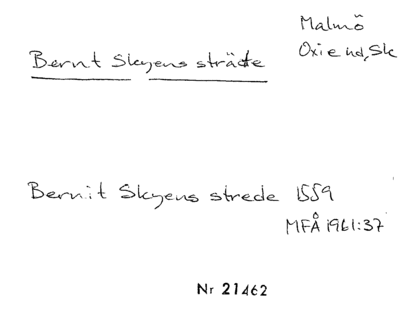 Malmö
Bernt Skyens sträde
Oxie hd, Sk
Bernit Skyens strede 1559
MFÅ 1961:37
Nr 21462